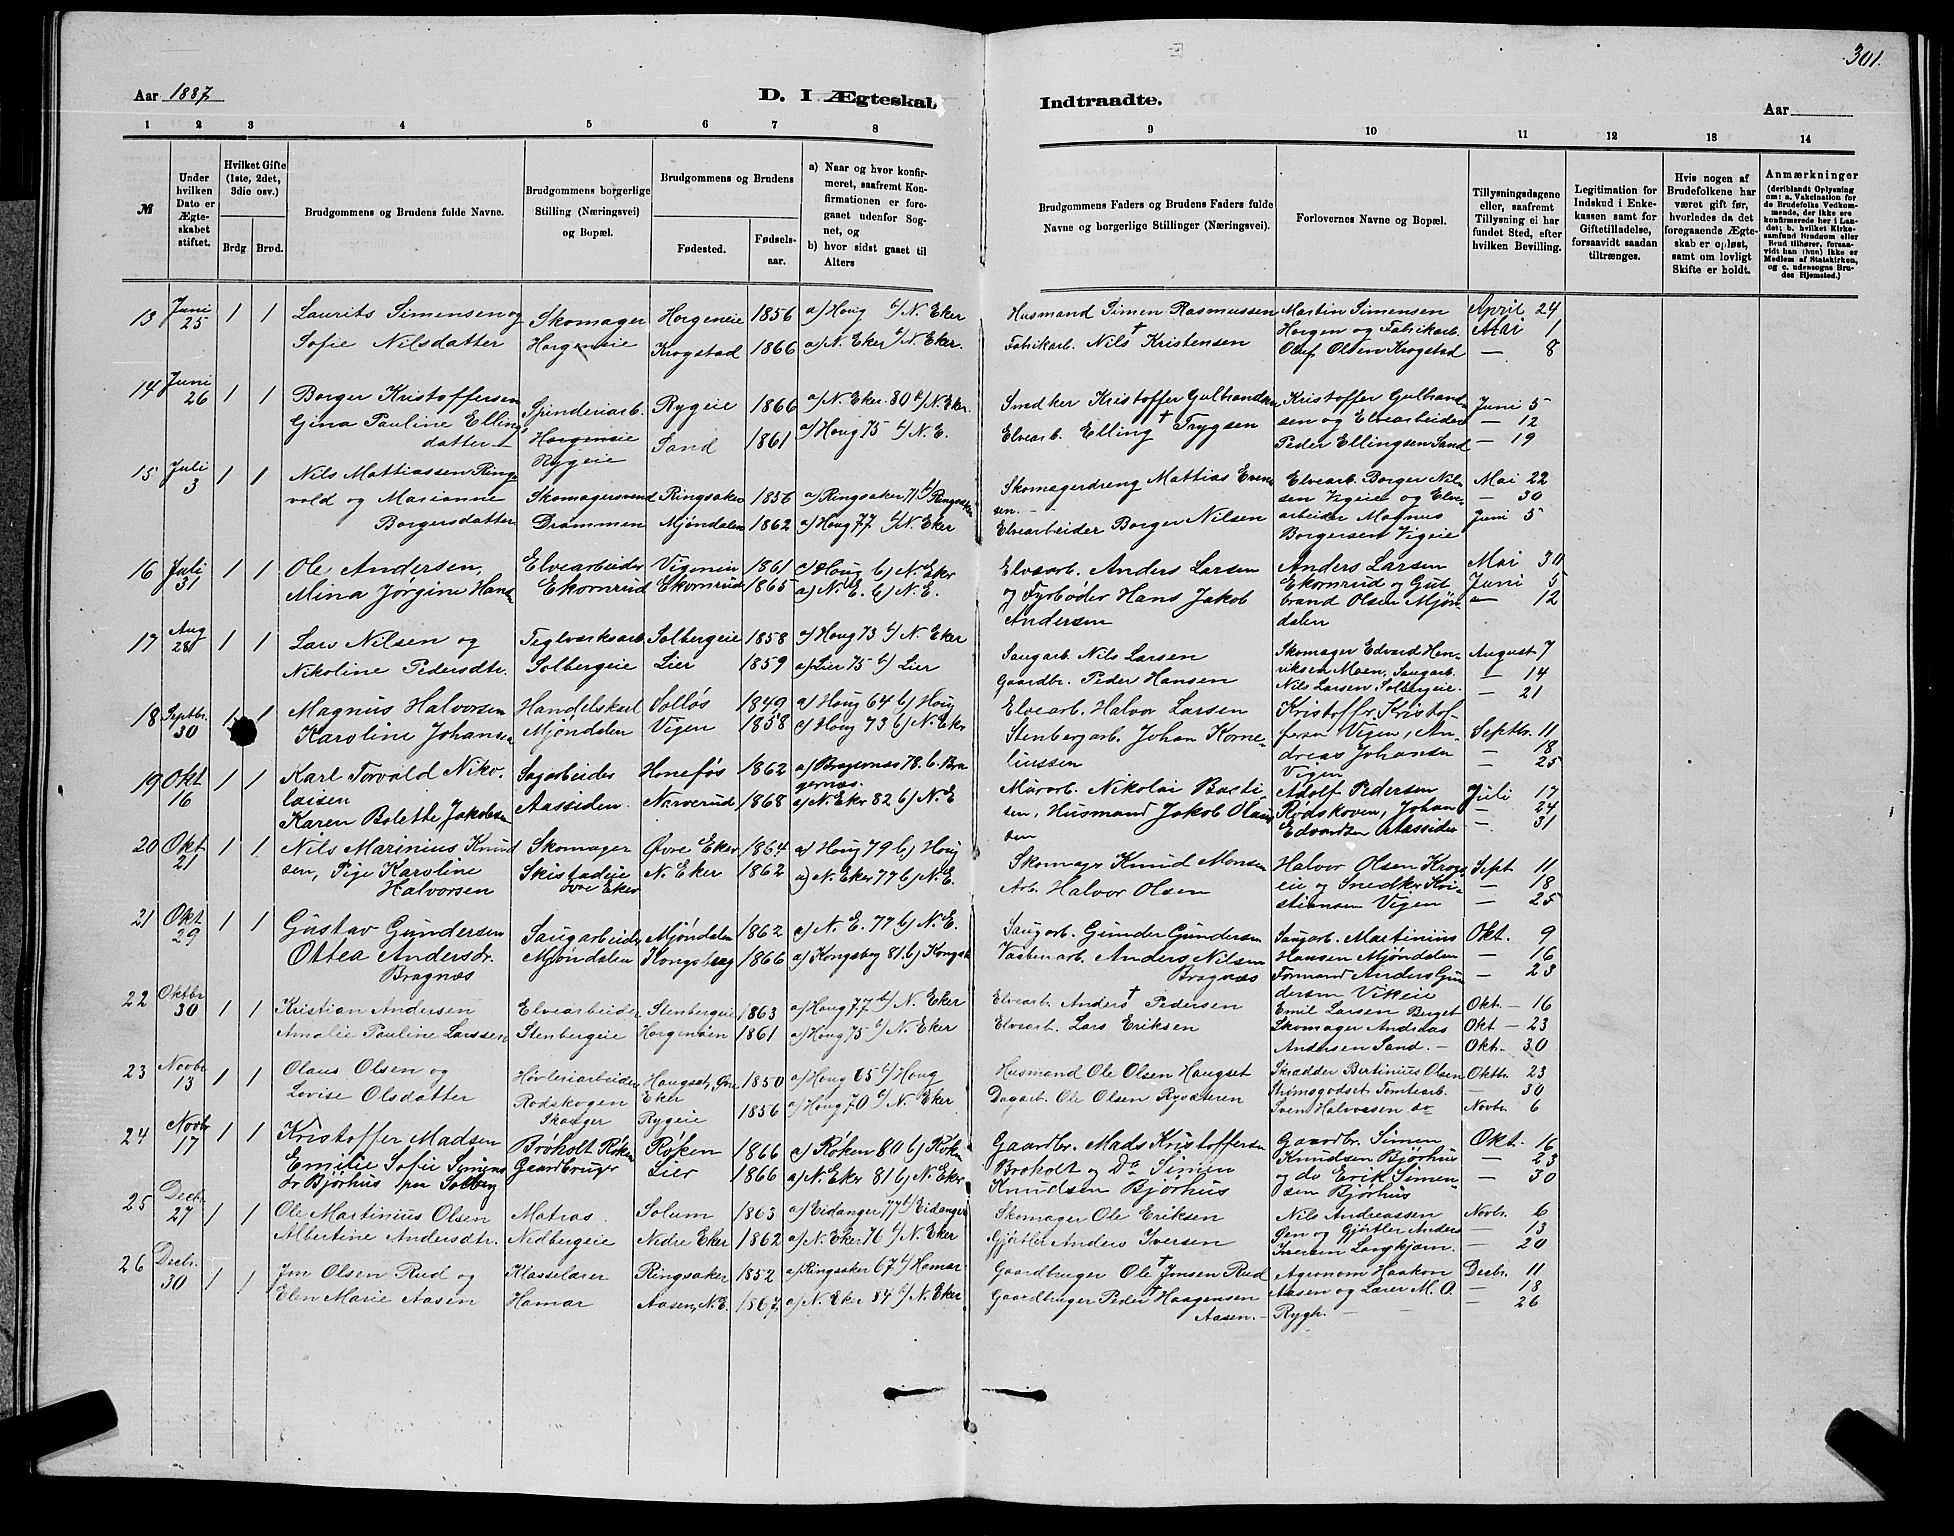 301.
Aar 1887 D. I Ægteskab Indtraadte. Aar
1 2 3 4 5 6 7 8 9 10 11 12 13 14
№
Under hvilken Dato er Ægteskabet stiftet.
Hvilket Gifte (1ste, 2det, 3die osv.)
Brdg. Brud.
Brudgommens og Brudens fulde Navne.
Brudgommens borgerlige Stilling (Næringsvei) og Bopæl.
Brudgommens og Brudens
Fødested. Fødselsaar.
a) Naar og hvor konfirmeret, saafremt Konfirmationen er foregaaet udenfor Sognet, og
b) hvor sidst gaaet til Alters
Brudgommens Faders og Brudens Faders fulde Navne og borgerlige Stillinger (Næringsvei).
Forlovernes Navne og Bopæl.
Tillysningsdagene eller, saafremt Tillysning ei har fundet Sted, efter hvilken Bevilling.
Legitimation for Indskud i Enkekassen samt for Giftetilladelse, forsaavidt saadan tiltrænges.
Hvis nogen af Brudefolkene har været gift før, hvorledes da det foregaaende Ægteskab er opløst, samt om lovligt Skifte er holdt.
Anmærkninger (deriblandt Oplysning om: a. Vakcination for de Brudefolks Vedkommende, der ikke ere konfirmerede her i Landet; b. hvilket Kirkesamfund Brudgom eller Brud tilhører, forsaavidt han (hun) ikke er Medlem af Statskirken, og c. udensogns Brudes Hjemsted.)
13 Juni 25 1 1 Laurits Simensen og Skomager Horgeneie 1856 a) Houg b) N. Eker Husmand Simen Rasmussen Martin Simensen April 24
Sofie Nilsdatter Horgeneie Krogstad 1866 a) N. Eker b) N. Eker. Fabrikarb. Nils † Kristensen Horgen og Fabrikarb. Mai 1
Oluf Olsen Krogstad — 8
14 Juni 26 1 1 Borger Kristoffersen Spinderiarb. Rygeie 1866 a) N. Eker 80 b) N. Eker. Snedker Kristoffer Gulbrandsen Kristoffer Gulbrand- Juni 5
Gina Pauline Ellings Horgeneie Sand 1861 a) Houg 75 b) N. E. Elvearb. Elling † Trygsen sen og Elvearbeider — 12
datter Rygeie Peder Ellingsen Sand — 19
15 Juli 3 1 1 Nils Mattiassen Ring- Skomagerdreng Mattias Even- Elvearb. Borger Nil- Mai 22
vold og Marianne Skomagersvend Ringsaker 1856 a) Ringsaker 71 b) Ringsaker sen. sen Vigeie og Elve- — 30
Borgersdatter Drammen Mjøndalen 1862 a) Houg 77 b) N. Eker Elvearbeider Borger Nilsen arbeider Magnus Juni 5
Borgersen Vigeie
16 Juli 31 1 1 Ole Andersen, Elvearbeider Vigeneie 1861 a) Houg b) N. Eker Elvearb. Anders Larsen Anders Larsen Mai 30
Mina Jørgine Hans Ekornrud Ekornrud 1865 a) N. E. b) N. E. og Fyrbøder Hans Jakob Ekornrud og Gul- Juni 5
Andersen brand Olsen Mjøn- — 12
dalen
17 Aug 28 1 1 Lars Nilsen og Teglværksarb. Solbergeie 1858 a) Houg 73 b) N. Eker Saugarb. Nils Larsen Skomager Edvard Hen- August 7
Nikoline Pedersdtr. Solbergeie Lier 1859 a) Lier 75 b) Lier Gaardbr. Peder Hansen riksen Moen, Saugarb. — 14
Nils Larsen Solbergeie. — 21
18 Septbr. 30 1 1 Magnus Halvorsen Handelskarl Solløs 1849 a) Houg 64 b) Houg Elvearb. Halvor Larsen Kristoffer Kristof-
Karoline Johansen Mjøndalen Vigen 1858 a) Houg 73 b) N. Eker Stenbergarb. Johan Korne- fersen Vigen, An- Septbr. 11
liussen dreas Johansen — 18
Vigen — 25
19 Okt 16 1 1 Karl Torvald Niko- Sagarbeider Hønefos 1862 a) Bragernæs 78. b. Bragernæs. Murarb. Nikolai Basti- Adolf Pedersen Juli 17
laisen Aassiden Narverud 1868 a) N. Eker 82 b) N. E sen, Husmand Jakob Olaus Rødskoven, Johan — 24
Karen Bolette Jakobsen sen Edvardsen Aassiden — 31
20 Okt 21 1 1 Nils Marinius Knud Skomager Øvre Eker 1864 a) Houg 79 b) Houg Skomager Knud Monsen Halvor Olsen Krogs Sept 11
sen, Pige Karoline Skistadeie N. Eker 1862 a) N. Eker 77 b) N. E. Arb. Halvor Olsen eie og Snedker Kri- — 18
Halvorsen Øvre Eker stiansen Vigen — 25
21 Okt 29 1 1 Gustav Gundersen Saugarbeider Mjøndalen 1862 a) N. E. 77 b) N. E. Saugarb. Gunder Gundersen Saugarb. Martinius Okt. 9
Ottea Andersdr. Mjøndalen Kongsberg 1866 a) Kongsbg 81 b) Kongsb. Anders Nilsen Hansen Mjøndalen — 16
Bragnæs Bragnæs Formand Anders Gun — 23
dersen Vikeie
22 Oktbr 30 1 1 Kristian Andersen Elvearbeider Stenbergeie 1863 a) Houg 77 b) N. Eker Elvearb. Anders † Pedersen Emil Larsen Okt — 16
Amalie Pauline Larssen Stenbergeie Horgenøien 1861 a) Houg 75 b) N. Eker Elvearb. Lars Eriksen Skomager Andreas Okt — 23
Andersen Sand. — Okt. 30
23 Novbr 13 1 1 Olaus Olsen og Høvleriarbeider Haugset, Øvre Eker 1850 a) Houg 65 b) Houg Husmand Ole Olsen Haugset Skrædder Bertinius Olsen Oktbr. 23
Lovise Olsdatter Rødskogen Skoger Rygeie 1856 a) Houg 70 b) N. Eker Dagarb. Ole Olsen Strømsgodset Tomtearb. — 30
Sven Halvorsen do Novbr. 6
24 Novbr 17 1 1 Kristoffer Madsen Brøholt Røken Røken 1866 a) Røken 80 b) Røken Gaardbr. Mads Kristoffersen Gaardbr. Simen Okt. 16
Emilie Sofie Simens Gaardbruger Lier 1866 a) N. Eker 81 b) N. Eker Broholt og Do Simen Knudsen Bjørhus — 23
dr Bjørhus Solberg Knudsen Bjørhus og do Erik Simen — 30
sen Bjørhus
25 Decbr. 27 1 1 Ole Martinius Olsen Matros. Solum 1863 a) Eidanger 77 b) Eidanger Skomager Ole Eriksen Nils Andreassen Novbr. 6
Albertine Andersdtr. Nedbergeie Nedre Eker 1862 a) N. Eker 76 b) N. Eker Gjørtler Anders Iversen Øen og Gjørtler Anders — 13
Iversen Langkjærn. — 20
26 Decbr. 30 1 1 Jon Olsen Rud og Klasselærer Ringsaker 1852 a) Ringsaker 67 b) Hamar Gaardbruger Ole † Jonsen Rud Agronom Haakon Decbr. 11
Elen Marie Aasen Hamar Aasen, N. E. 1867 a) N. Eker 84 b) N. Eker Gaardbruger Peder † Haagensen Aasen og Lærer M. O. — 18
Aasen. — Rygh. — — 26